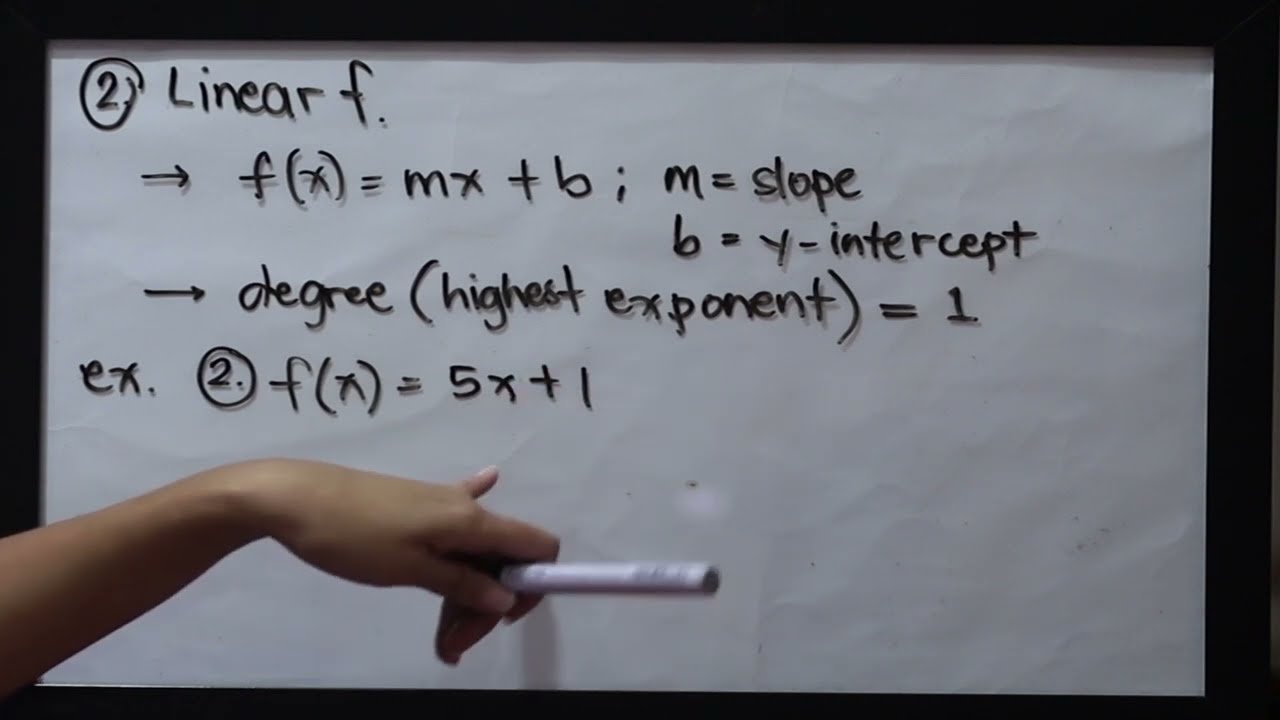 ② Linear f.
→ f(x) = mx + b ; m = slope
b = y-intercept
→ degree (highest exponent) = 1
ex. ②. f(x) = 5x + 1